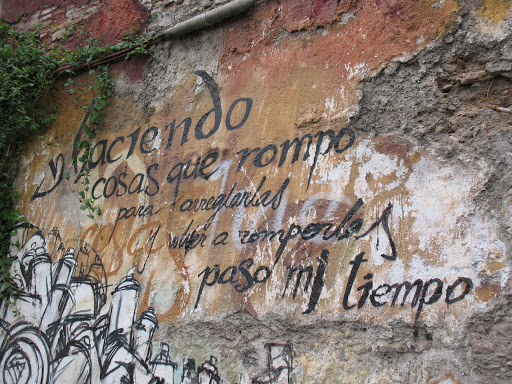 y haciendo
cosas que rompo
para arreglarlas
y volver a romperlas
paso mi tiempo